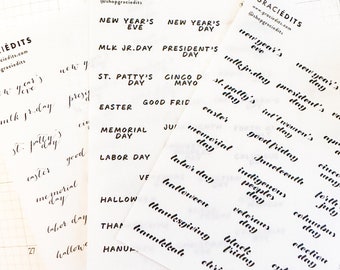 GRACIÉDITS
@shopgraciedits
new year's
eve
mlk jr.day
st. patty's
day
easter
memorial
day
labor day
27
@shopgraciedits
NEW YEAR'S
EVE
NEW YEAR'S
DAY
MLK JR.DAY
PRESIDENT'S
DAY
ST. PATTY'S
DAY
CINCO D
MAYO
EASTER
GOOD FRIDAY
MEMORIAL
DAY
LABOR DAY
VE
HALLOW
THAN
HANU
GRACIÉDITS
@shopgraciedits
new year's
eve
new year's
day
mlk jr.day
president's
day
st. patty's
day
int'l women's
day
easter
good friday
memorial
day
juneteenth
labor day
indigenous
peoples
day
halloween
veterans
day
columbus
day
thanksgiving
black
friday
election
day
hanukkah